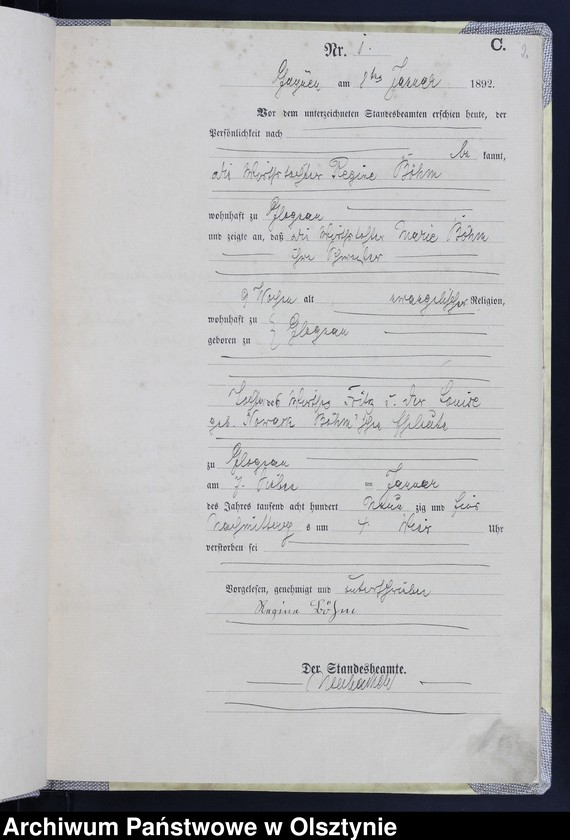 Nr. 1.
C.
2.
am Januar 1892.
Vor dem unterzeichneten Standesbeamten erschien heute, der
Persönlichkeit nach
be kannt,
die Wirthstochter Regine Böhm
wohnhaft zu
und zeigte an, daß die Wirthstochter Marie Böhm
ihre Schwester
9 Wochen alt evangelischer Religion,
wohnhaft zu
geboren zu
Tochter des Wirths Fritz u. der Louise
geb. Böhm'schen Eheleute
zu
am 7. Sieben = Januar
des Jahres tausend acht hundert Neun zig und
Nachmittag s um 4 Vier Uhr
verstorben sei
Vorgelesen, genehmigt und unterschrieben
Regina Böhm
Der Standesbeamte.
Archiwum Państwowe w Olsztynie